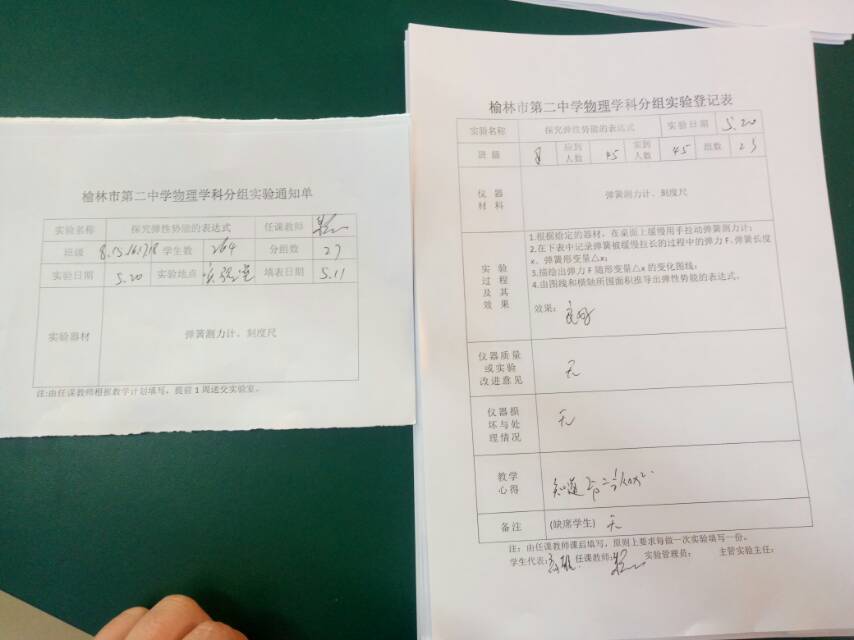 榆林市第二中学物理学科分组实验通知单
实验名称 探究弹性势能的表达式 任课教师
班级 8.15.16.17.18 学生数 264 分组数 27
实验日期 5.20 实验地点 实验室 填表日期 5.11
实验器材 弹簧测力计、刻度尺
注:由任课教师根据教学计划填写，提前1周送交实验室。
榆林市第二中学物理学科分组实验登记表
实验名称 探究弹性势能的表达式 实验日期 5.20
班级 8 应到人数 45 实到人数 45 组数 23
仪器材料 弹簧测力计、刻度尺
实验过程及其效果
1.根据给定的器材，在桌面上缓慢用手拉动弹簧测力计；
2.在下表中记录弹簧被缓慢拉长的过程中的弹力F、弹簧长度
x、弹簧形变量△x；
3.描绘出弹力F随形变量△x的变化图线；
4.由图线和横轴所围面积推导出弹性势能的表达式。
效果： 良好
仪器质量或实验改进意见 无
仪器损坏与处理情况 无
教学心得 知道 Ep=½k△x²
备注 (缺席学生) 无
注：由任课教师课后填写，原则上要求每做一次实验填写一份。
学生代表: 任课教师: 实验管理员: 主管实验主任: